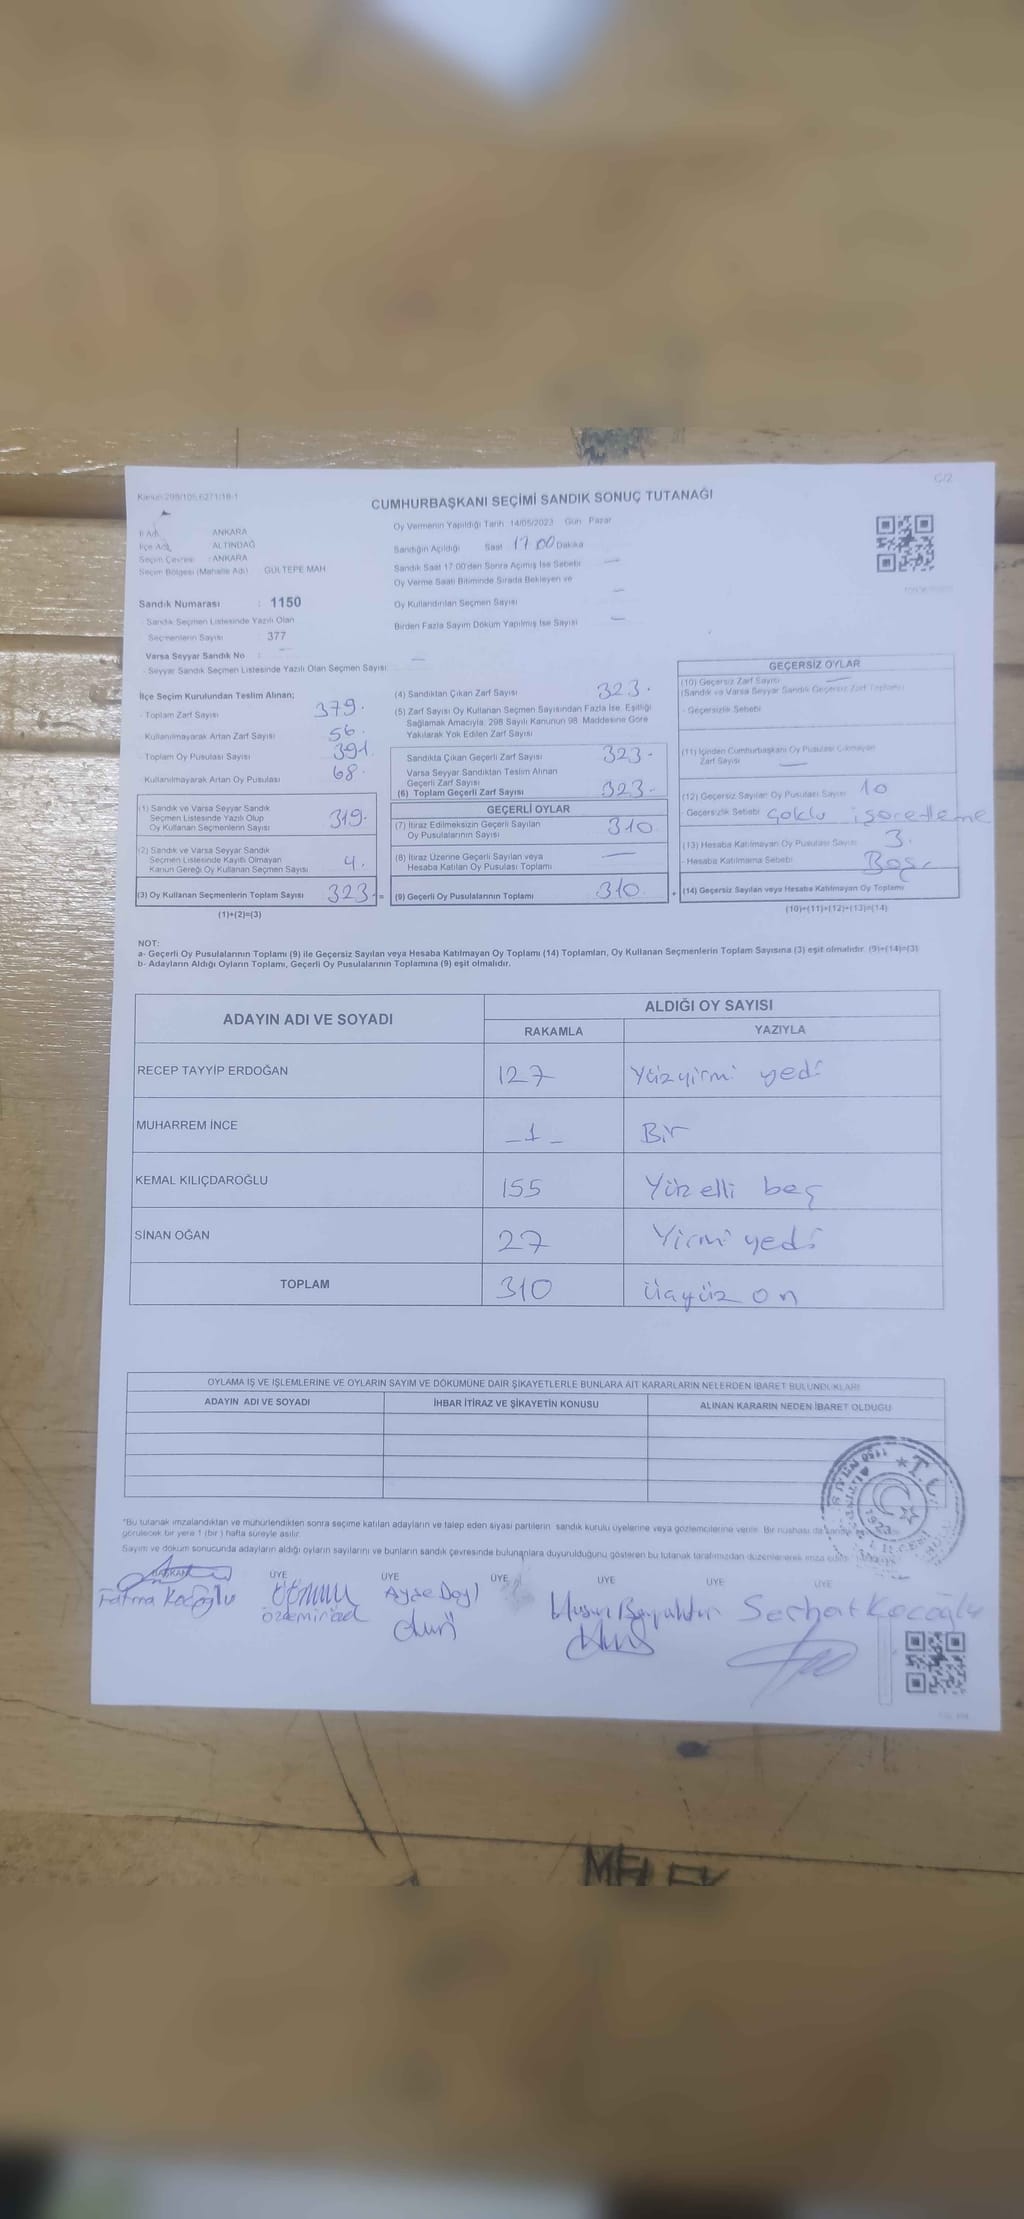 C/2
Kanun:298/105,6271/18-1
CUMHURBAŞKANI SEÇİMİ SANDIK SONUÇ TUTANAĞI
İl Adı ANKARA
İlçe Adı ALTINDAĞ
Seçim Çevresi : ANKARA
Seçim Bölgesi (Mahalle Adı) GÜLTEPE MAH
Sandık Numarası : 1150
Sandık Seçmen Listesinde Yazılı Olan
Seçmenlerin Sayısı 377
Varsa Seyyar Sandık No :
- Seyyar Sandık Seçmen Listesinde Yazılı Olan Seçmen Sayısı
Oy Vermenin Yapıldığı Tarih 14/05/2023 Gün Pazar
Sandığın Açıldığı Saat 17 00 Dakika
Sandık Saat 17:00'den Sonra Açılmış İse Sebebi —
Oy Verme Saati Bitiminde Sırada Bekleyen ve
Oy Kullandırılan Seçmen Sayısı —
Birden Fazla Sayım Döküm Yapılmış İse Sayısı —
İlçe Seçim Kurulundan Teslim Alınan;
- Toplam Zarf Sayısı 379.
- Kullanılmayarak Artan Zarf Sayısı 56.
- Toplam Oy Pusulası Sayısı 391.
- Kullanılmayarak Artan Oy Pusulası 68.
(1) Sandık ve Varsa Seyyar Sandık
Seçmen Listesinde Yazılı Olup
Oy Kullanan Seçmenlerin Sayısı 319.
(2) Sandık ve Varsa Seyyar Sandık
Seçmen Listesinde Kayıtlı Olmayan
Kanun Gereği Oy Kullanan Seçmen Sayısı 4.
(3) Oy Kullanan Seçmenlerin Toplam Sayısı 323 =
(1)+(2)=(3)
(4) Sandıktan Çıkan Zarf Sayısı 323.
(5) Zarf Sayısı Oy Kullanan Seçmen Sayısından Fazla İse, Eşitliği
Sağlamak Amacıyla, 298 Sayılı Kanunun 98. Maddesine Göre
Yakılarak Yok Edilen Zarf Sayısı
Sandıkta Çıkan Geçerli Zarf Sayısı 323.
Varsa Seyyar Sandıktan Teslim Alınan
Geçerli Zarf Sayısı
(6) Toplam Geçerli Zarf Sayısı 323.
GEÇERLİ OYLAR
(7) İtiraz Edilmeksizin Geçerli Sayılan
Oy Pusulalarının Sayısı 310
(8) İtiraz Üzerine Geçerli Sayılan veya
Hesaba Katılan Oy Pusulası Toplamı —
(9) Geçerli Oy Pusulalarının Toplamı 310 +
GEÇERSİZ OYLAR
(10) Geçersiz Zarf Sayısı —
(Sandık ve Varsa Seyyar Sandık Geçersiz Zarf Toplamı)
- Geçersizlik Sebebi
(11) İçinden Cumhurbaşkanı Oy Pusulası Çıkmayan
Zarf Sayısı —
(12) Geçersiz Sayılan Oy Pusulası Sayısı 10
- Geçersizlik Sebebi çoklu işaretleme
(13) Hesaba Katılmayan Oy Pusulası Sayısı 3.
- Hesaba Katılmama Sebebi Boş.
(14) Geçersiz Sayılan veya Hesaba Katılmayan Oy Toplamı
(10)+(11)+(12)+(13)=(14)
NOT:
a- Geçerli Oy Pusulalarının Toplamı (9) ile Geçersiz Sayılan veya Hesaba Katılmayan Oy Toplamı (14) Toplamları, Oy Kullanan Seçmenlerin Toplam Sayısına (3) eşit olmalıdır. (9)+(14)=(3)
b- Adayların Aldığı Oyların Toplamı, Geçerli Oy Pusulalarının Toplamına (9) eşit olmalıdır.
ADAYIN ADI VE SOYADI ALDIĞI OY SAYISI
RAKAMLA YAZIYLA
RECEP TAYYİP ERDOĞAN 127 Yüzyirmi yedi
MUHARREM İNCE _1_ Bir
KEMAL KILIÇDAROĞLU 155 Yüz elli beş
SİNAN OĞAN 27 Yirmi yedi
TOPLAM 310 üçyüz on
OYLAMA İŞ VE İŞLEMLERİNE VE OYLARIN SAYIM VE DÖKÜMÜNE DAİR ŞİKAYETLERLE BUNLARA AİT KARARLARIN NELERDEN İBARET BULUNDUKLARI
ADAYIN ADI VE SOYADI İHBAR İTİRAZ VE ŞİKAYETİN KONUSU ALINAN KARARIN NEDEN İBARET OLDUĞU
*Bu tutanak imzalandıktan ve mühürlendikten sonra seçime katılan adayların ve talep eden siyasi partilerin sandık kurulu üyelerine veya gözlemcilerine verilir. Bir nüshası da
görülecek bir yere 1 (bir) hafta süreyle asılır.
Sayım ve döküm sonucunda adayların aldığı oyların sayılarını ve bunların sandık çevresinde bulunanlara duyurulduğunu gösteren bu tutanak tarafımızdan düzenlenerek imza edildi.
BAŞKAN ÜYE ÜYE ÜYE ÜYE ÜYE ÜYE
Fatma Kocoğlu
Serhat Kocoğlu
T.C.
1923
MELEK